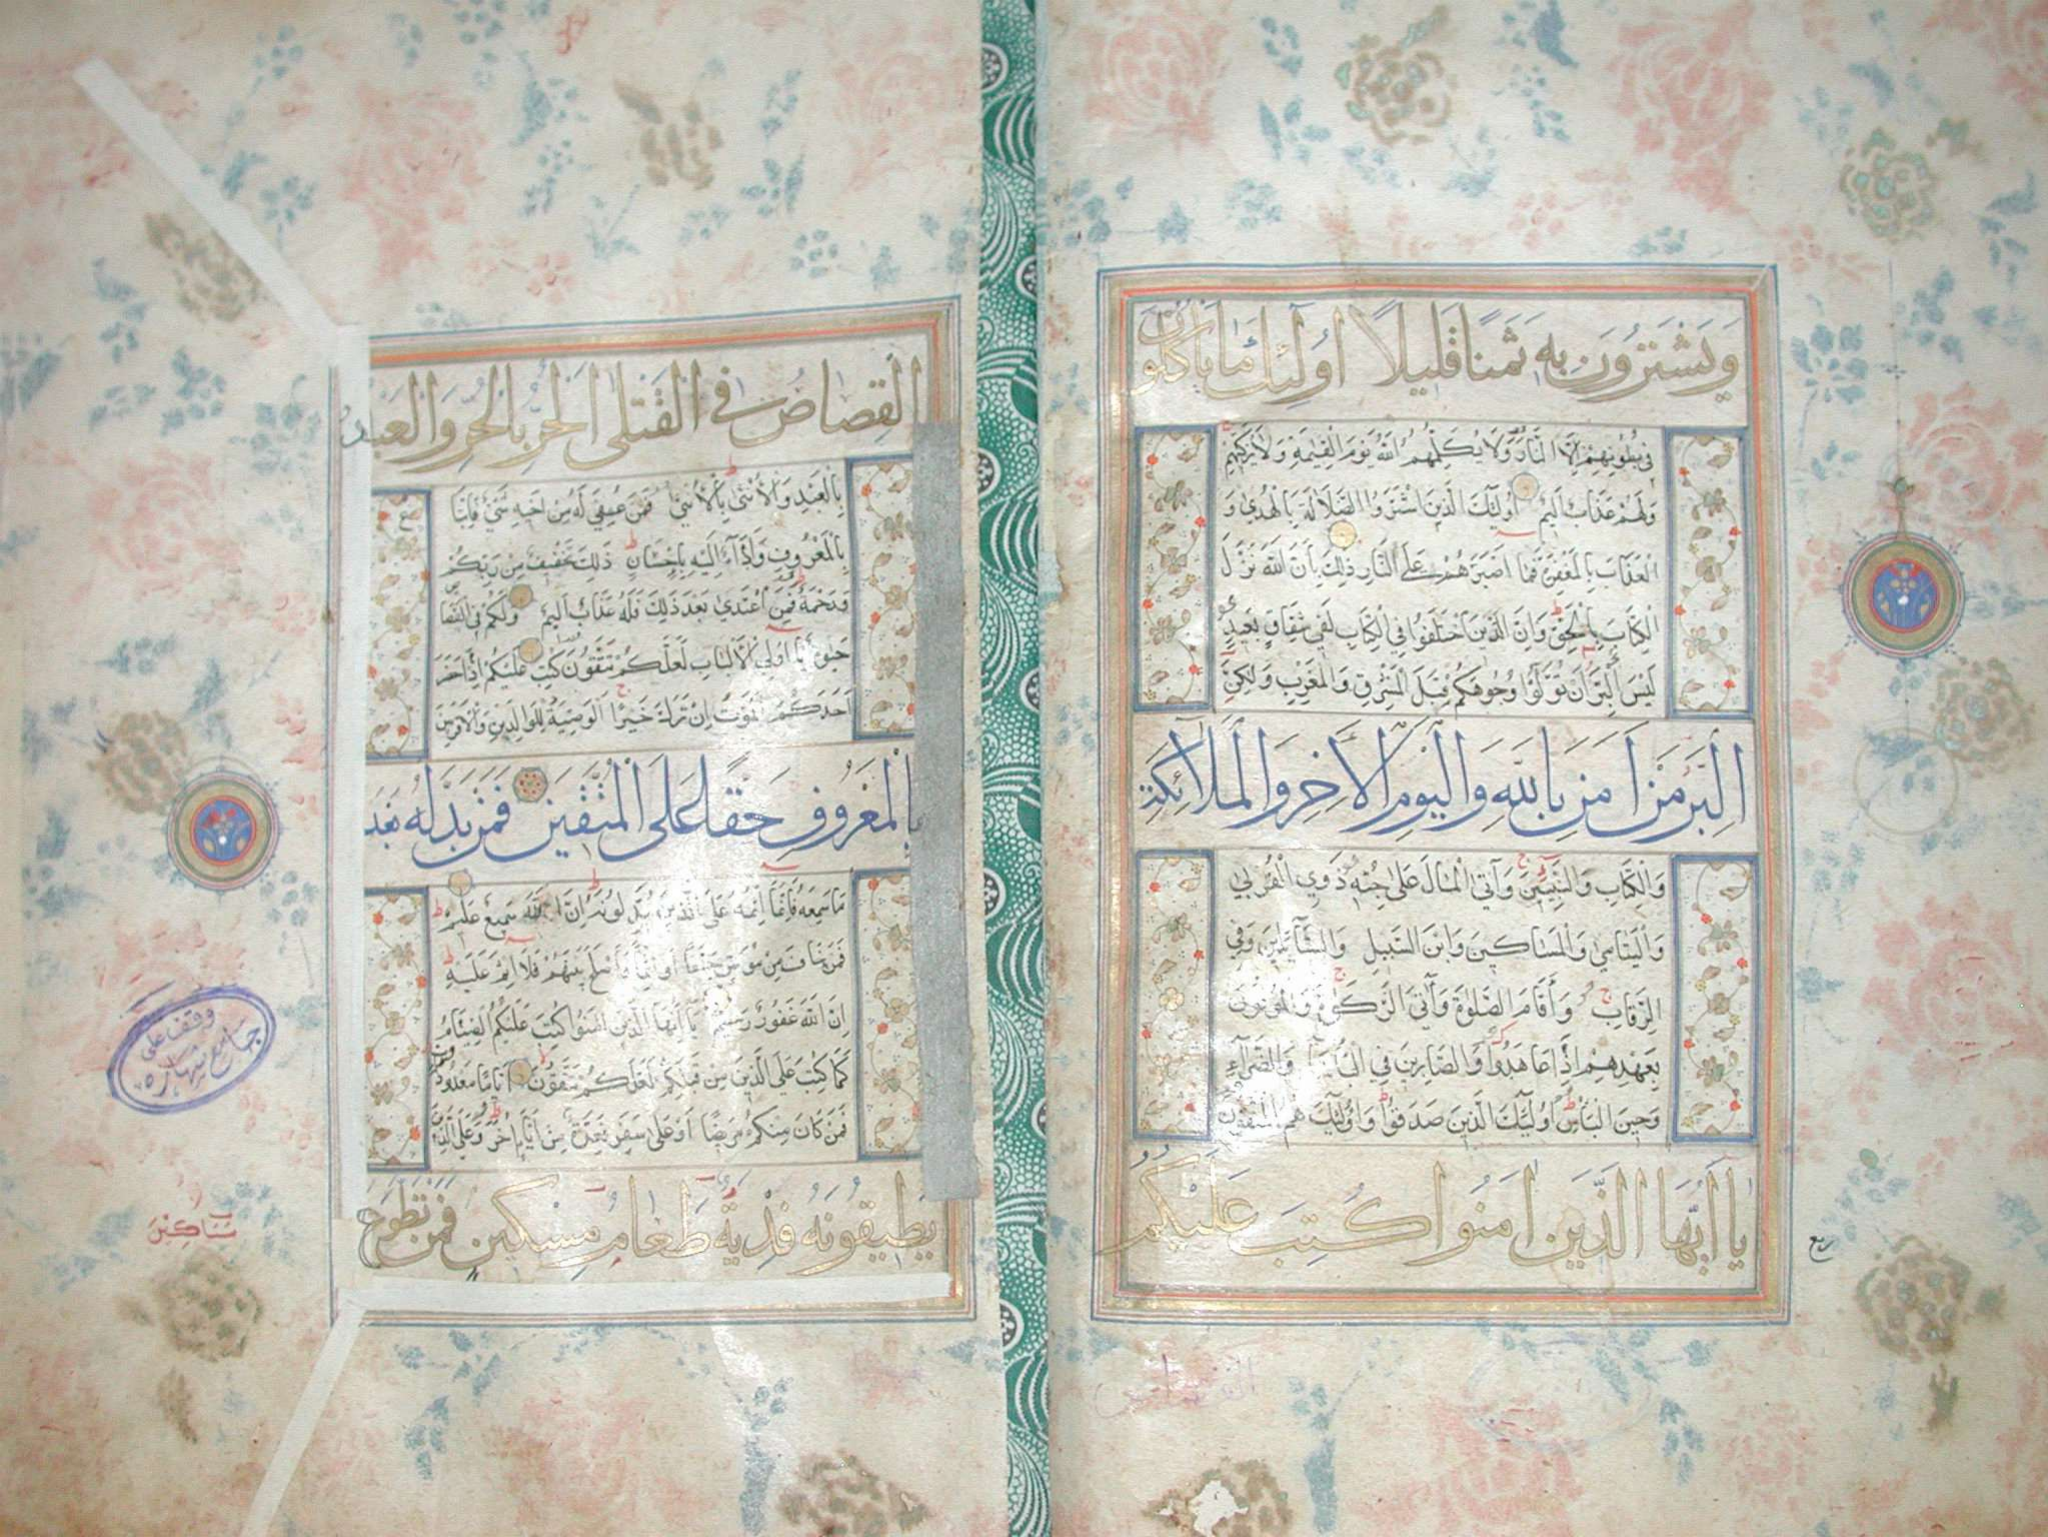 وَيَشْتَرُونَ بِهِ ثَمَنًا قَلِيلًا اُولَٰئِكَ مَا يَأْكُلُونَ
فِي بُطُونِهِمْ اِلَّا النَّارَ وَلَا يُكَلِّمُهُمُ اللَّهُ يَوْمَ الْقِيٰمَةِ وَلَا يُزَكِّيهِمْ
وَلَهُمْ عَذَابٌ اَلِيمٌ اُولَٰئِكَ الَّذِينَ اشْتَرَوُا الضَّلَالَةَ بِالْهُدَىٰ وَ
الْعَذَابَ بِالْمَغْفِرَةِ فَمَا اَصْبَرَهُمْ عَلَى النَّارِ ذٰلِكَ بِاَنَّ اللَّهَ نَزَّلَ
الْكِتَابَ بِالْحَقِّ وَاِنَّ الَّذِينَ اخْتَلَفُوا فِي الْكِتَابِ لَفِي شِقَاقٍ بَعِيدٍ
لَيْسَ الْبِرَّ اَنْ تُوَلُّوا وُجُوهَكُمْ قِبَلَ الْمَشْرِقِ وَالْمَغْرِبِ وَلَكِنَّ
الْبِرَّ مَنْ اٰمَنَ بِاللَّهِ وَالْيَوْمِ الْاٰخِرِ وَالْمَلَائِكَةِ
وَالْكِتَابِ وَالنَّبِيِّينَ وَآتَى الْمَالَ عَلَىٰ حُبِّهِ ذَوِي الْقُرْبَىٰ
وَالْيَتَامَىٰ وَالْمَسَاكِينَ وَابْنَ السَّبِيلِ وَالسَّآئِلِينَ وَفِي
الرِّقَابِ وَأَقَامَ الصَّلٰوةَ وَآتَى الزَّكٰوةَ وَالْمُوفُونَ
بِعَهْدِهِمْ اِذَا عَاهَدُوا وَالصَّابِرِينَ فِي الْبَأْسَآءِ وَالضَّرَّآءِ
وَحِينَ الْبَأْسِ اُولَٰئِكَ الَّذِينَ صَدَقُوا وَاُولَٰئِكَ هُمُ الْمُتَّقُونَ
يَا اَيُّهَا الَّذِينَ اٰمَنُوا كُتِبَ عَلَيْكُمُ
ربع
الْقِصَاصُ فِي الْقَتْلَى الْحُرُّ بِالْحُرِّ وَالْعَبْدُ
بِالْعَبْدِ وَالْاُنْثَىٰ بِالْاُنْثَىٰ فَمَنْ عُفِيَ لَهُ مِنْ اَخِيهِ شَيْءٌ فَاتِّبَاعٌ
بِالْمَعْرُوفِ وَاَدَآءٌ اِلَيْهِ بِاِحْسَانٍ ذٰلِكَ تَخْفِيفٌ مِنْ رَبِّكُمْ
وَرَحْمَةٌ فَمَنِ اعْتَدَىٰ بَعْدَ ذٰلِكَ فَلَهُ عَذَابٌ اَلِيمٌ وَلَكُمْ فِي الْقِصَاصِ
حَيٰوةٌ يَا اُولِي الْاَلْبَابِ لَعَلَّكُمْ تَتَّقُونَ كُتِبَ عَلَيْكُمْ اِذَا حَضَرَ
اَحَدَكُمُ الْمَوْتُ اِنْ تَرَكَ خَيْرًا الْوَصِيَّةُ لِلْوَالِدَيْنِ وَالْاَقْرَبِينَ
بِالْمَعْرُوفِ حَقًّا عَلَى الْمُتَّقِينَ فَمَنْ بَدَّلَهُ بَعْدَ
مَا سَمِعَهُ فَاِنَّمَا اِثْمُهُ عَلَى الَّذِينَ يُبَدِّلُونَهُ اِنَّ اللَّهَ سَمِيعٌ عَلِيمٌ
فَمَنْ خَافَ مِنْ مُوصٍ جَنَفًا اَوْ اِثْمًا فَاَصْلَحَ بَيْنَهُمْ فَلَا اِثْمَ عَلَيْهِ
اِنَّ اللَّهَ غَفُورٌ رَحِيمٌ يَا اَيُّهَا الَّذِينَ اٰمَنُوا كُتِبَ عَلَيْكُمُ الصِّيَامُ
كَمَا كُتِبَ عَلَى الَّذِينَ مِنْ قَبْلِكُمْ لَعَلَّكُمْ تَتَّقُونَ اَيَّامًا مَعْدُودَاتٍ
فَمَنْ كَانَ مِنْكُمْ مَرِيضًا اَوْ عَلَىٰ سَفَرٍ فَعِدَّةٌ مِنْ اَيَّامٍ اُخَرَ وَعَلَى الَّذِينَ
يُطِيقُونَهُ فِدْيَةٌ طَعَامُ مِسْكِينٍ فَمَنْ تَطَوَّعَ
وقف على
جامع شهاره
مَسَاكِينَ